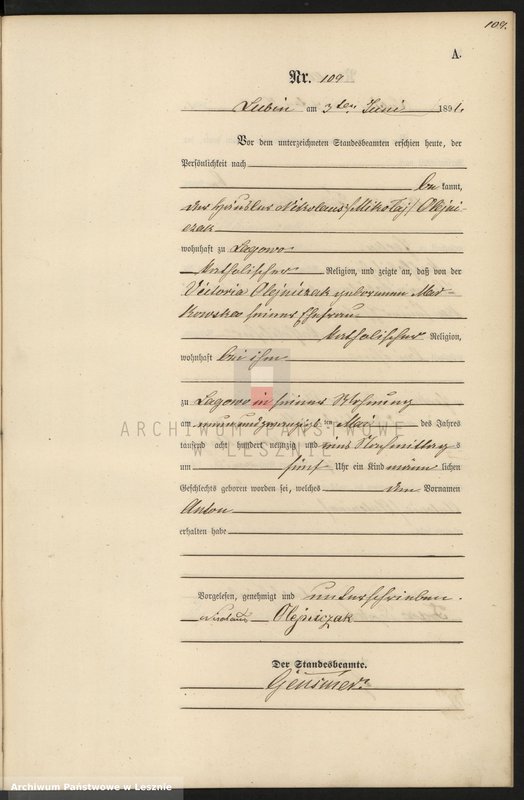 109.
A.
Nr. 109
Lubin am 3ten Juni 1891.
Vor dem unterzeichneten Standesbeamten erschien heute, der
Persönlichkeit nach
be kannt,
der Häusler Nikolaus /:Mikołaj:/ Olejni-
czak
wohnhaft zu Lagowo
katholischer Religion, und zeigte an, daß von der
Victoria Olejniczak geborenen Mar-
kowska seiner Ehefrau
katholischer Religion,
wohnhaft bei ihm
zu Lagowo in seiner Wohnung
am neunundzwanzigsten Mai des Jahres
tausend acht hundert neunzig und eins Nachmittags
um fünf Uhr ein Kind männlichen
Geschlechts geboren worden sei, welches den Vornamen
Anton
erhalten habe
Vorgelesen, genehmigt und unterschrieben.
Nikolaus Olejniczak
Der Standesbeamte.
ARCHIWUM PAŃSTWOWE
W LESZNIE
Archiwum Państwowe w Lesznie